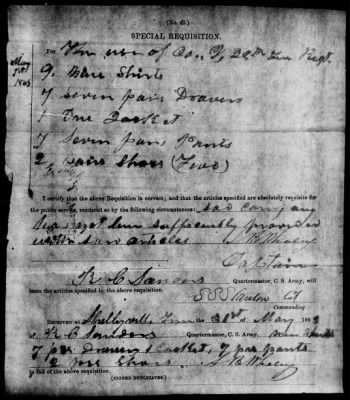 (No. 40.)
SPECIAL REQUISITION.
For The use of Co. 22th Ten Regt.
May
1863
9. Nine Shirts
7 Seven pairs Drawers
1 One Jacket
7 Seven pairs pants
2 pairs Shoes (Two)
I certify that the above Requisition is correct; and that the articles specified are absolutely requisite for
the public service, rendered so by the following circumstances: said company
has not been sufficiently provided
with said articles
Captain
R C Sanders Quartermaster, C. S. Army, will
issue the articles specified in the above requisition.
Commanding
Received at Shelbyville Tenn the 21st of May 1863
of R C Saunders Quartermaster, C. S. Army, nine Shirts
7 prs Drawers 1 Jacket, 7 prs pants
2 prs Shoes
in full of the above requisition.
(SIGNED DUPLICATES.)